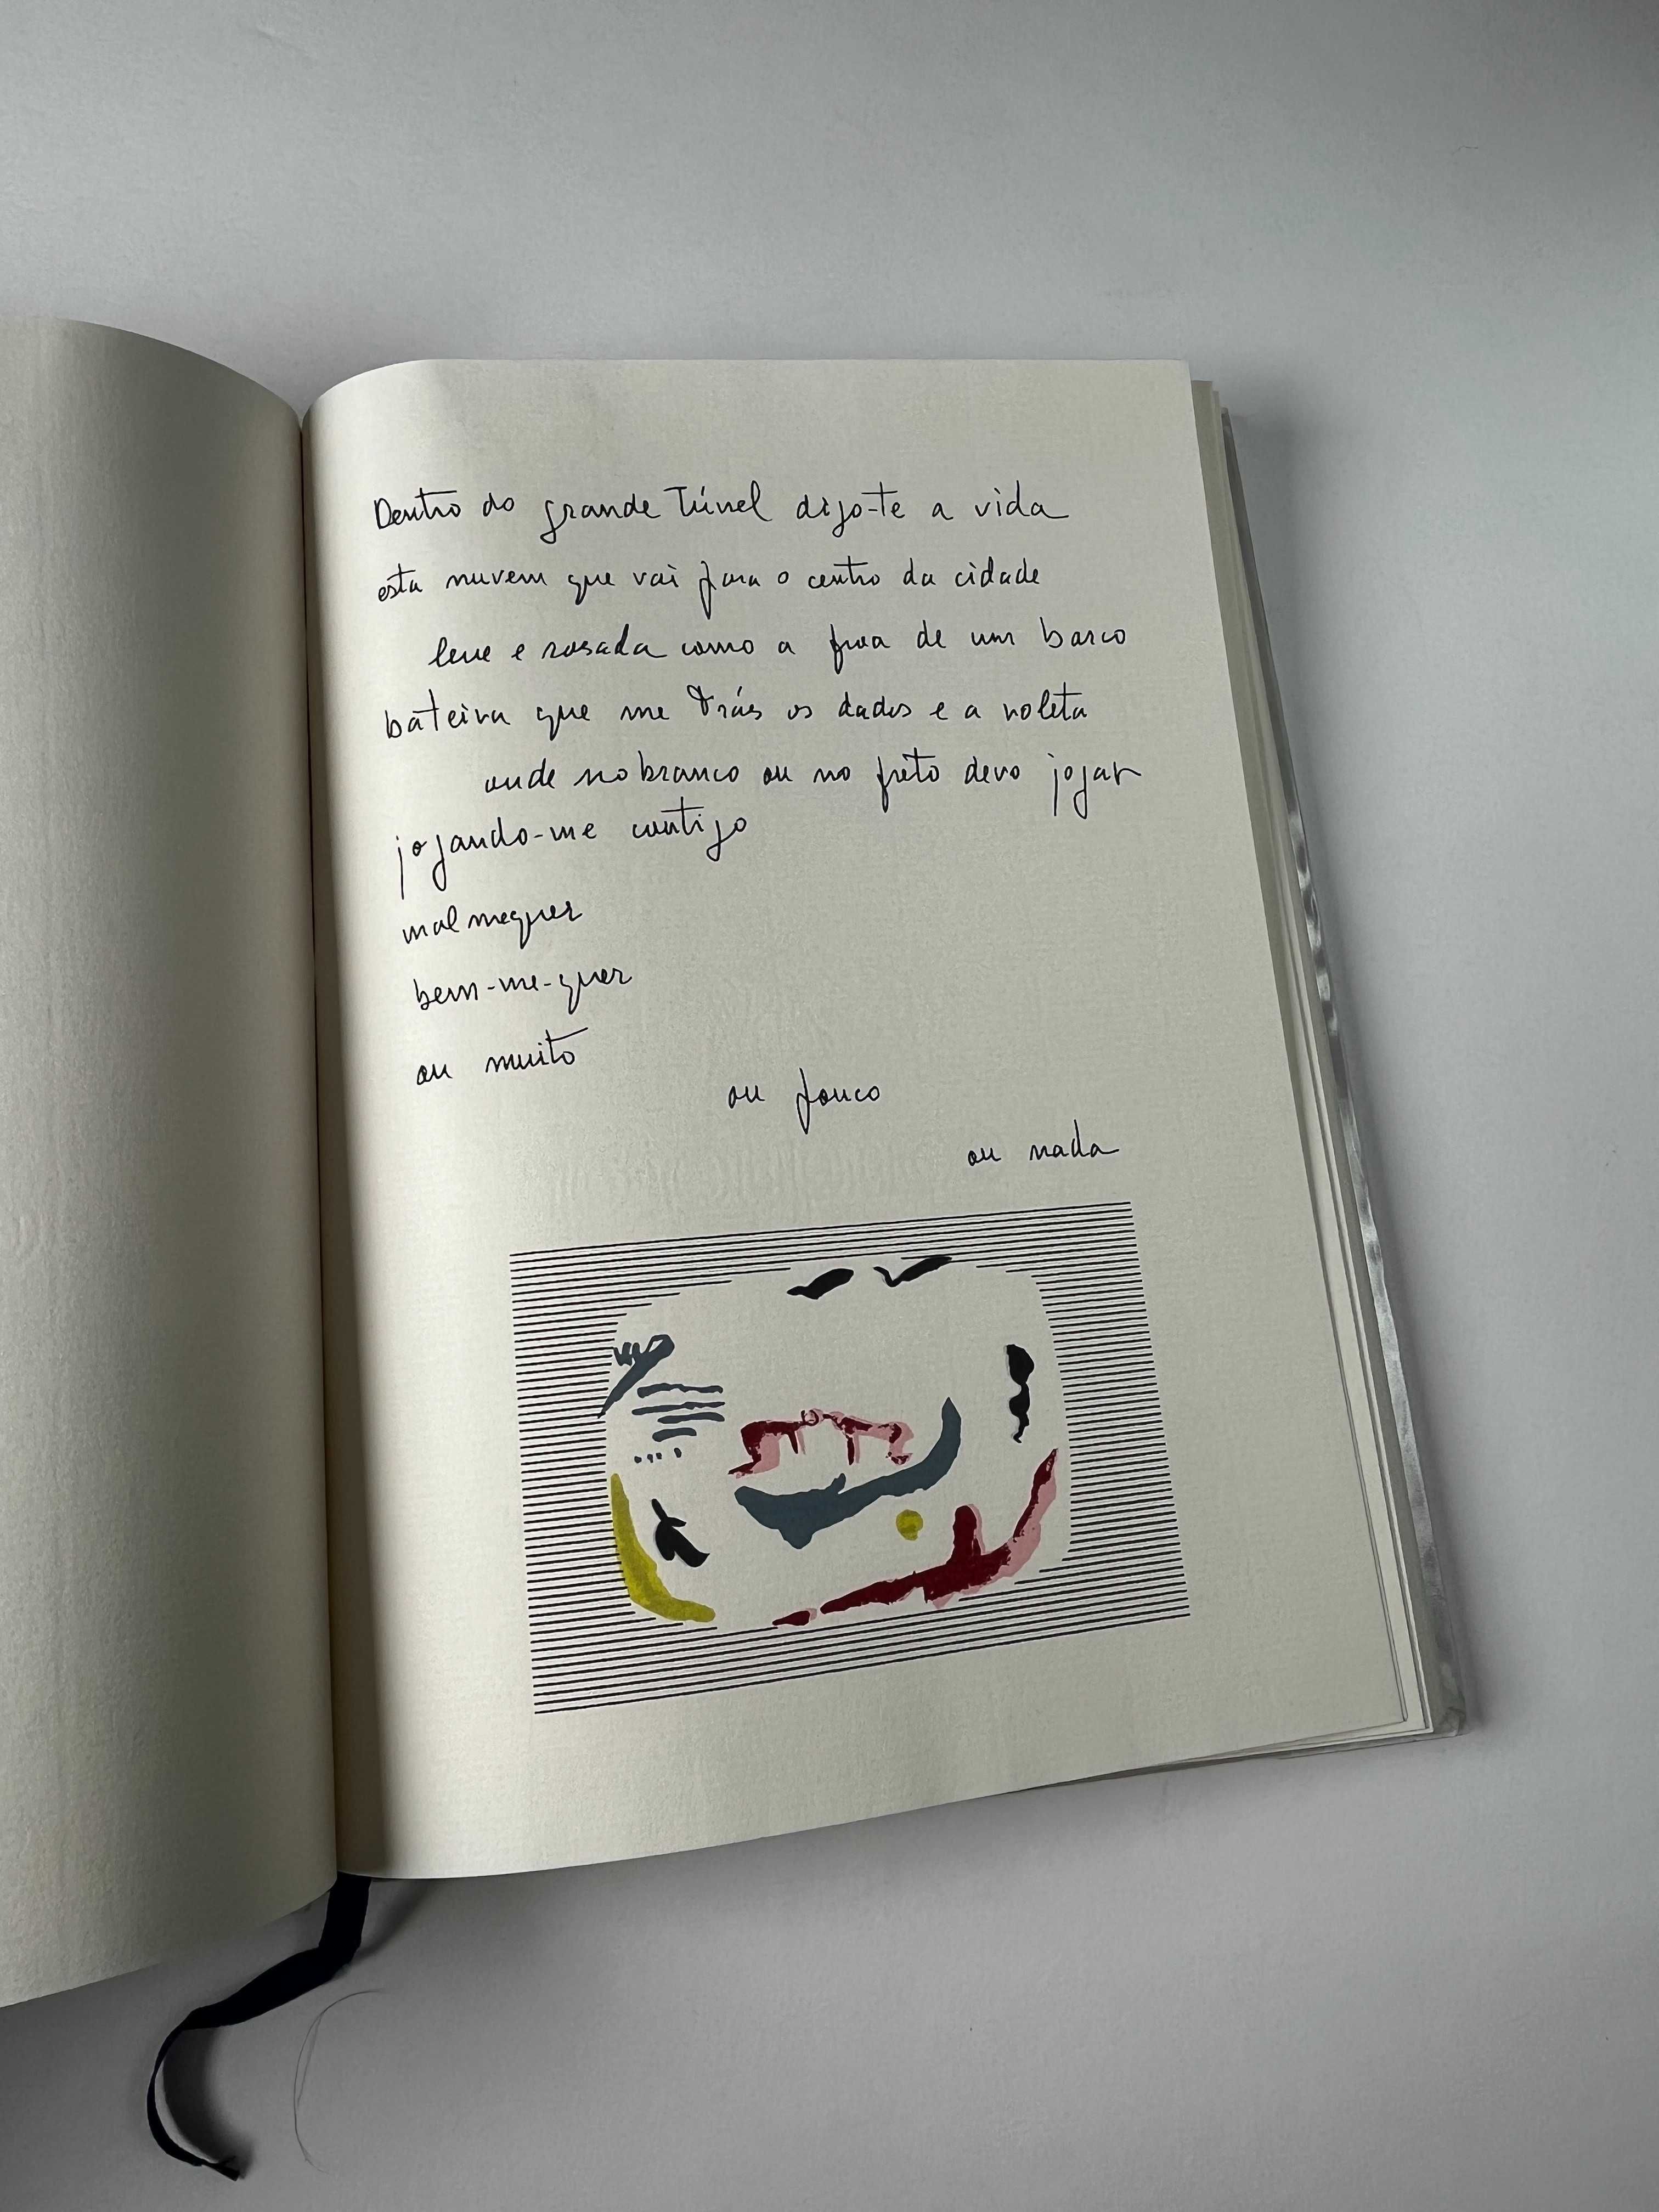 Dentro do grande Túnel digo-te a vida
esta nuvem que vai para o centro da cidade
leve e rosada como a proa de um barco
bateira que me trás os dados e a roleta
onde no branco ou no preto devo jogar
jogando-me contigo
malmequer
bem-me-quer
ou muito
ou pouco
ou nada